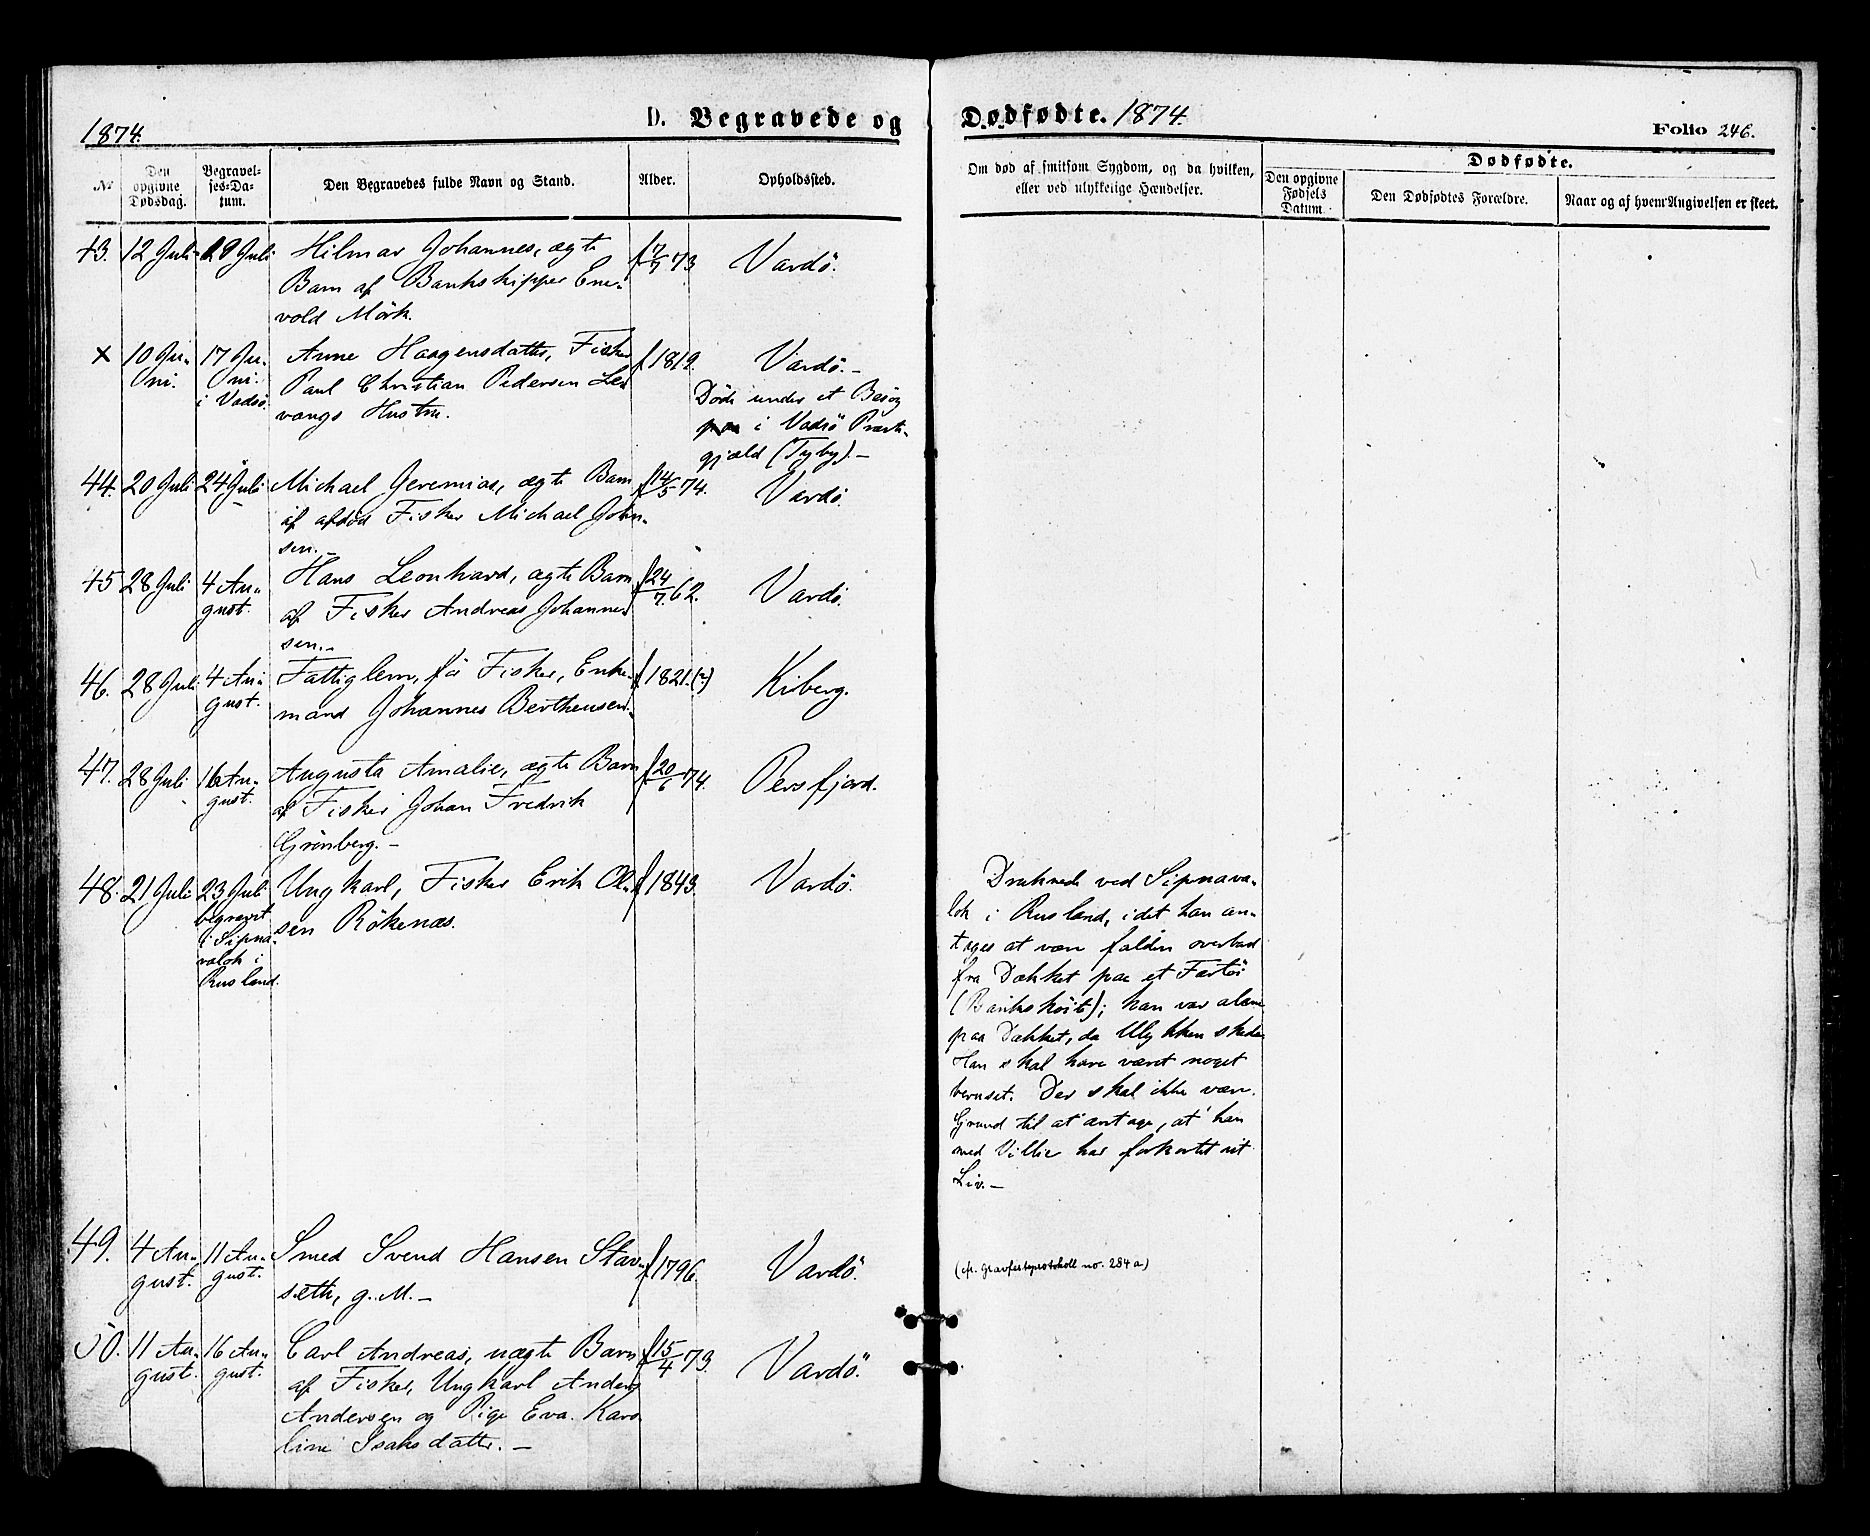 1874.
D. Begravede og
Dødfødte. 1874.
Folio 246.
№
Den opgivne Dødsdag.
Begravelses-Datum.
Den Begravedes fulde Navn og Stand.
Alder.
Opholdssted.
Om død af smitsom Sygdom, og da hvilken,
eller ved ulykkelige Hændelser.
Dødfødte.
Den opgivne Fødsels Datum.
Den Dødfødtes Forældre.
Naar og af hvem Angivelsen er skeet.
43. 12 Juli 19 Juli Hilmar Johannes, ægte f 7/7 73 Vardö.
Barn af Bankskipper Ene-
vold Mörk.
× 10 Ju- 17 Ju- Anne Haagensdatter, Fisker f 1819. Vardö.-
ni. ni. Paul Christian Pedersen Le- Döde under et Besög
i Vadsö. vangs Hustru. i Vadsö Præste-
gjæld (Tyby).-
44. 20 Juli 24 Juli Michael Jeremias, ægte Barn f 14/5 74. Vardö.
af afdöd Fisker Michael John-
sen.-
45 28 Juli 4 Au- Hans Leonhard, ægte Barn f 24/7 62. Vardö.
gust. af Fisker Andreas Johannes
sen.-
46. 28 Juli 4 Au- Fattiglem, för Fisker, Enke- f 1821.(?) Kiberg.
gust. mand Johannes Berthensen.
47. 28 Juli 16 Au- Augusta Amalie, ægte Barn f 20/6 74. Persfjord.
gust. af Fisker Johan Fredrik
Grönberg.-
48. 21 Juli 23 Juli Ungkarl, Fisker Erik Ol- f 1843. Vardö.
begravet sen Rökenæs.
i Sipna-
valok i
Rusland.
Druknede ved Sipnava-
lok i Rusland, idet han an-
tages at være falden overbord
fra Dækket paa et Fartöi
(Banksköite); han var alene
paa Dækket, da Ulykken skede.
Han skal have været noget
beruset. Der skal ikke være
Grund til at antage, at han
med Villie har forkortet sit
Liv.-
49. 4 Au- 11 Au- Smed Svend Hansen Stav- f 1796. Vardö. (cfr. Gravfesteprotokoll no. 284 a.)
gust. gust. sæth, g. M.-
50. 11 Au- 16 Au- Carl Andreas, uægte Barn f 15/4 73. Vardö.
gust. gust. af Fisker, Ungkarl Anders
Andersen og Pige Eva Karo
line Isaksdatter.-